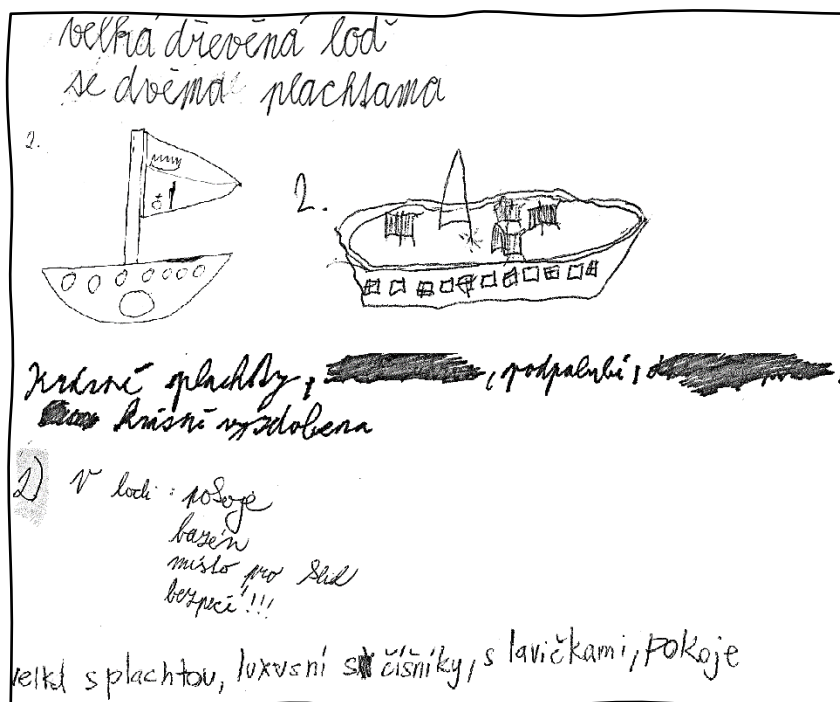 velká dřevěná loď
se dvěma plachtama
2.
2.
krásné plachty, , podpalubí,
krásně vyzdobena
2) V lodi: pokoje
bazén
místo pro klid
bezpečí!!!
velká s plachtou, luxusní s číšníky, s lavičkami, pokoje